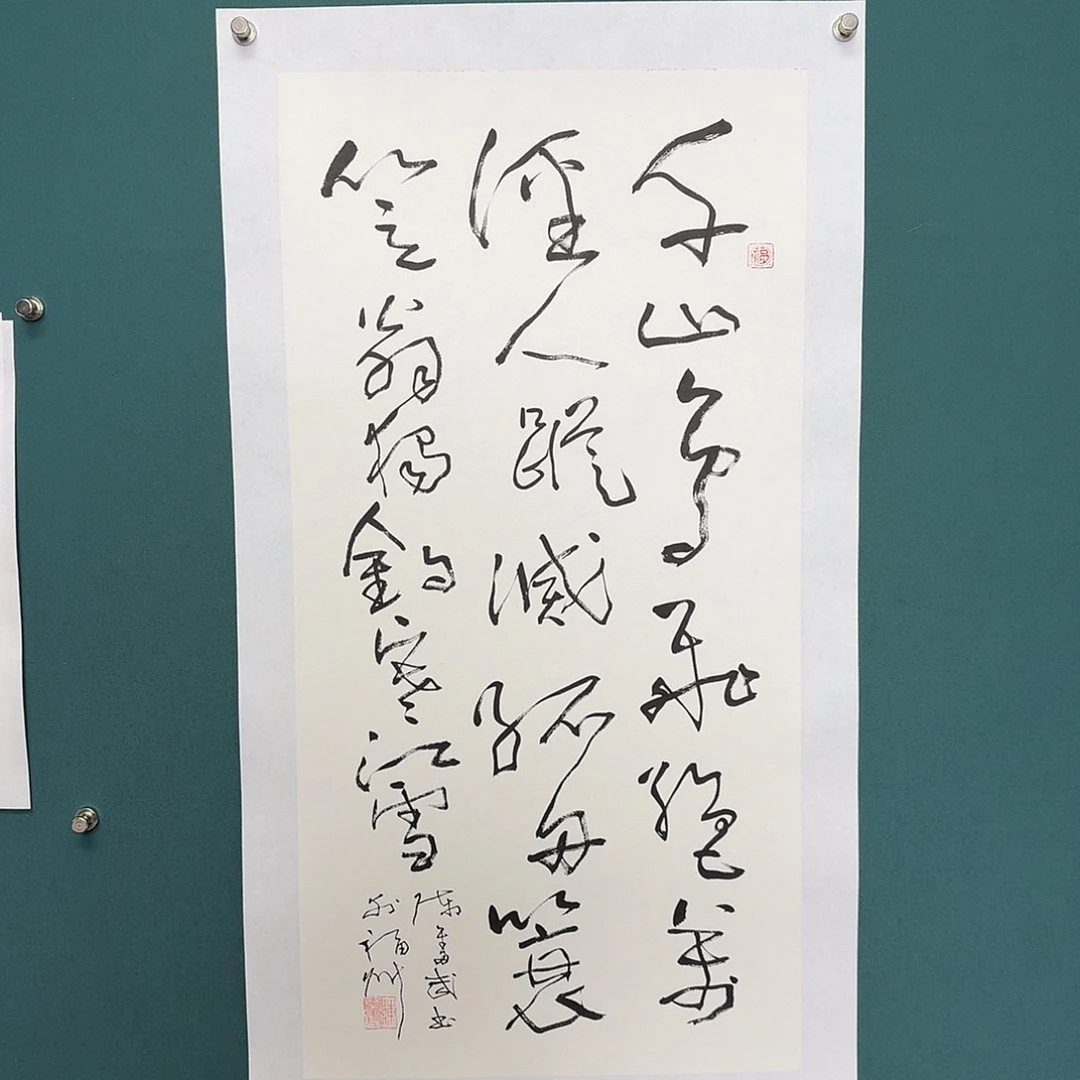 千山鳥飛絕萬
徑人蹤滅孤舟簑
笠翁獨釣寒江雪
陳奮武書
於福州